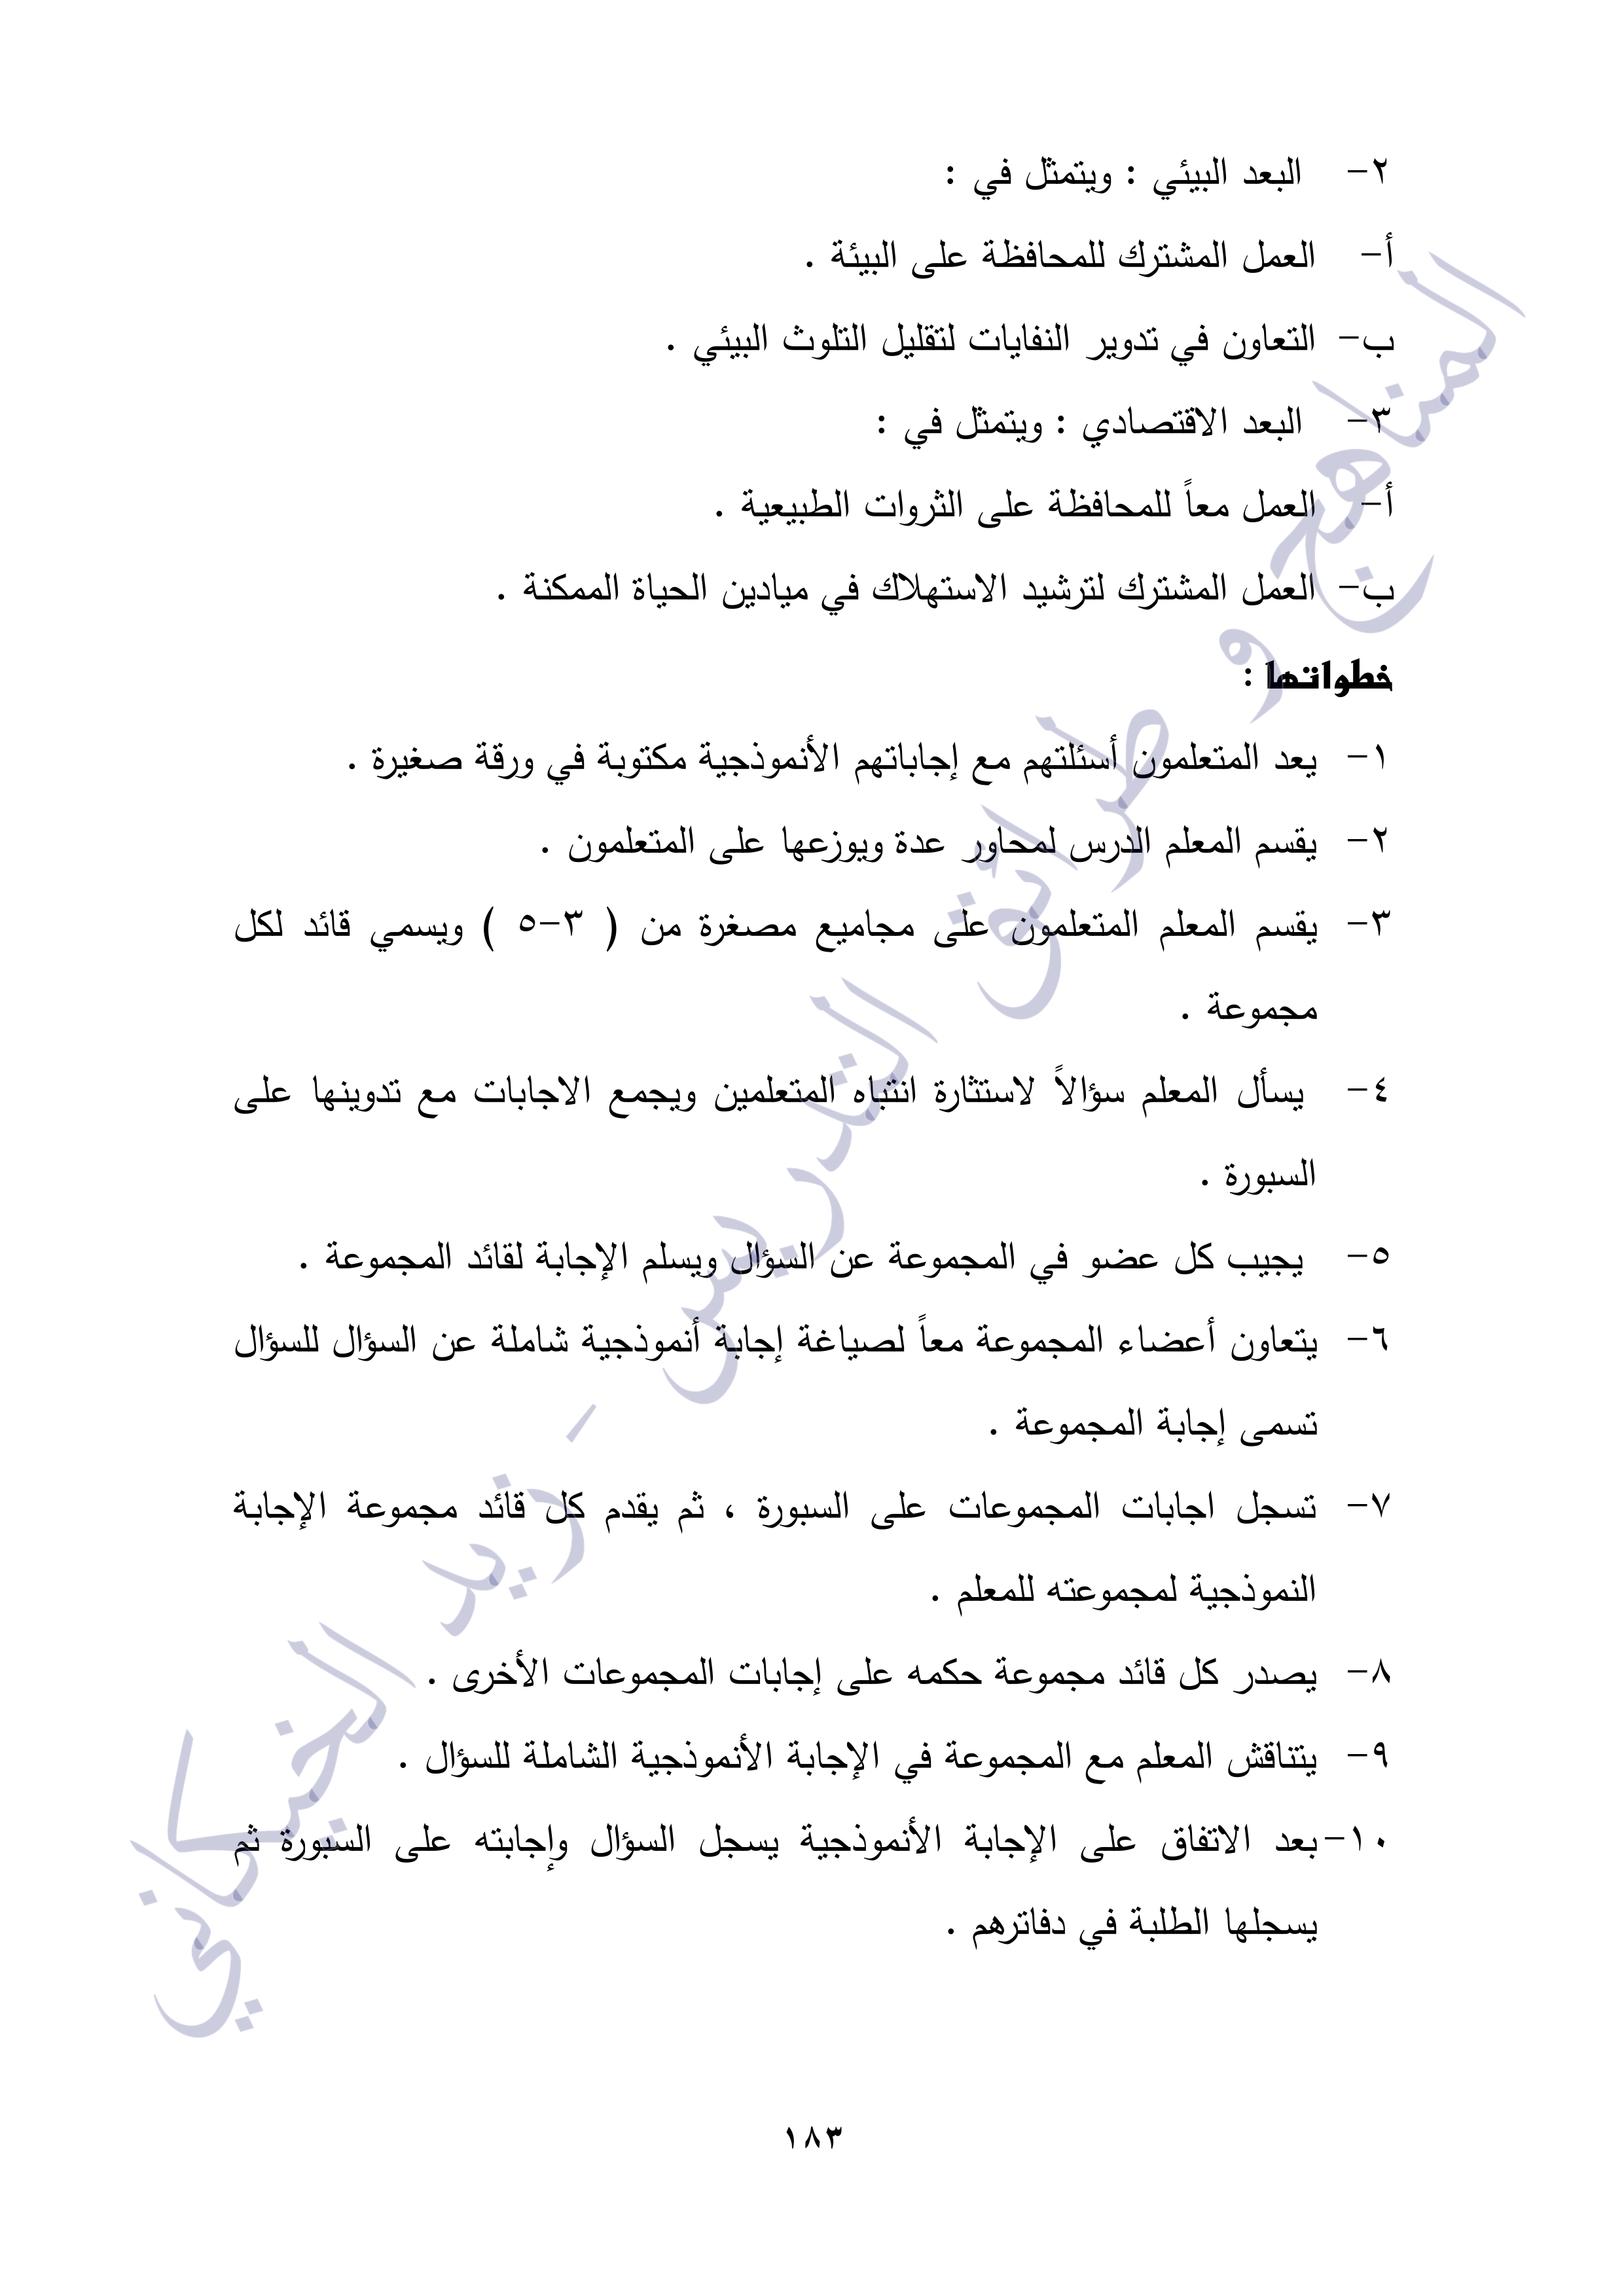 ٢- البعد البيئي : ويتمثل في :
أ- العمل المشترك للمحافظة على البيئة .
ب- التعاون في تدوير النفايات لتقليل التلوث البيئي .
٣- البعد الاقتصادي : ويتمثل في :
أ- العمل معاً للمحافظة على الثروات الطبيعية .
ب- العمل المشترك لترشيد الاستهلاك في ميادين الحياة الممكنة .
خطواتها :
١- يعد المتعلمون أسئلتهم مع إجاباتهم الأنموذجية مكتوبة في ورقة صغيرة .
٢- يقسم المعلم الدرس لمحاور عدة ويوزعها على المتعلمون .
٣- يقسم المعلم المتعلمون على مجاميع مصغرة من ( ٣-٥ ) ويسمي قائد لكل
مجموعة .
٤- يسأل المعلم سؤالاً لاستثارة انتباه المتعلمين ويجمع الاجابات مع تدوينها على
السبورة .
٥- يجيب كل عضو في المجموعة عن السؤال ويسلم الإجابة لقائد المجموعة .
٦- يتعاون أعضاء المجموعة معاً لصياغة إجابة أنموذجية شاملة عن السؤال للسؤال
تسمى إجابة المجموعة .
٧- تسجل اجابات المجموعات على السبورة ، ثم يقدم كل قائد مجموعة الإجابة
النموذجية لمجموعته للمعلم .
٨- يصدر كل قائد مجموعة حكمه على إجابات المجموعات الأخرى .
٩- يتناقش المعلم مع المجموعة في الإجابة الأنموذجية الشاملة للسؤال .
١٠- بعد الاتفاق على الإجابة الأنموذجية يسجل السؤال وإجابته على السبورة ثم
يسجلها الطلبة في دفاترهم .
المناهج و طرائق التدريس - زيد الخيكاني
١٨٣